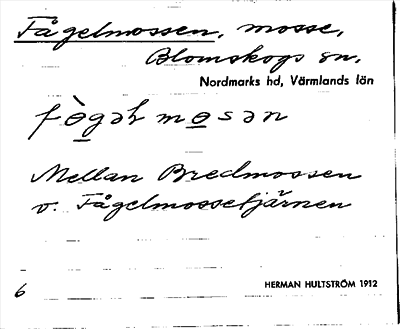 Fågelmossen, mosse,
Blomskogs sn,
Nordmarks hd, Värmlands län
Mellan Bredmossen
o. Fågelmossetjärnen
6 HERMAN HULTSTRÖM 1912